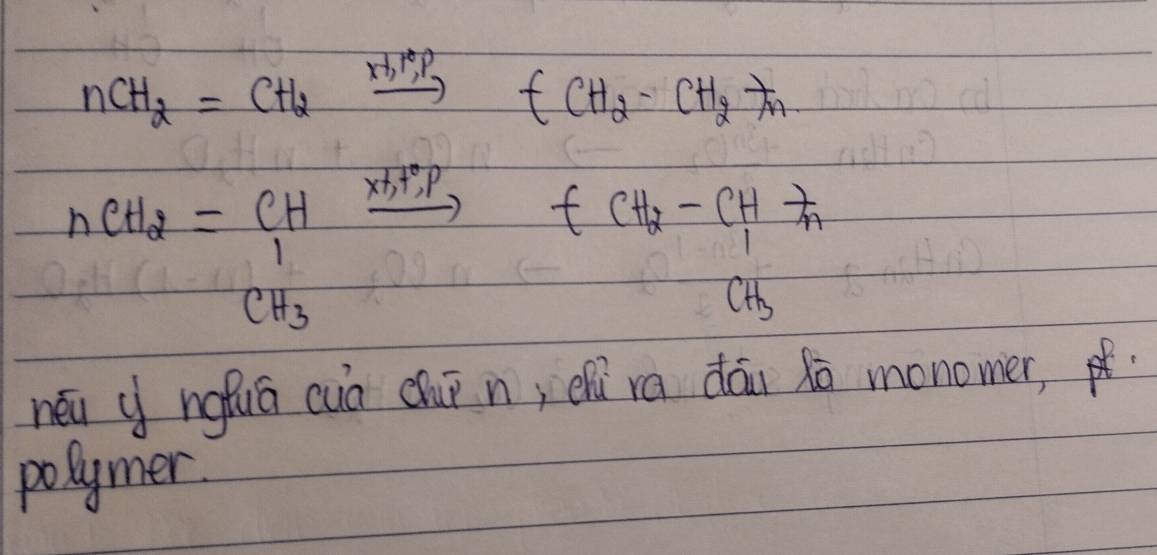 nCH₂ = CH₂ xt,t°,p → ( CH₂ - CH₂ )n.
nCH₂ = CH xt,t°,p → ( CH₂ - CH )n
| |
CH₃ CH₃
nêu ý nghĩa của chữ n, chỉ ra đâu là monomer,
polymer.